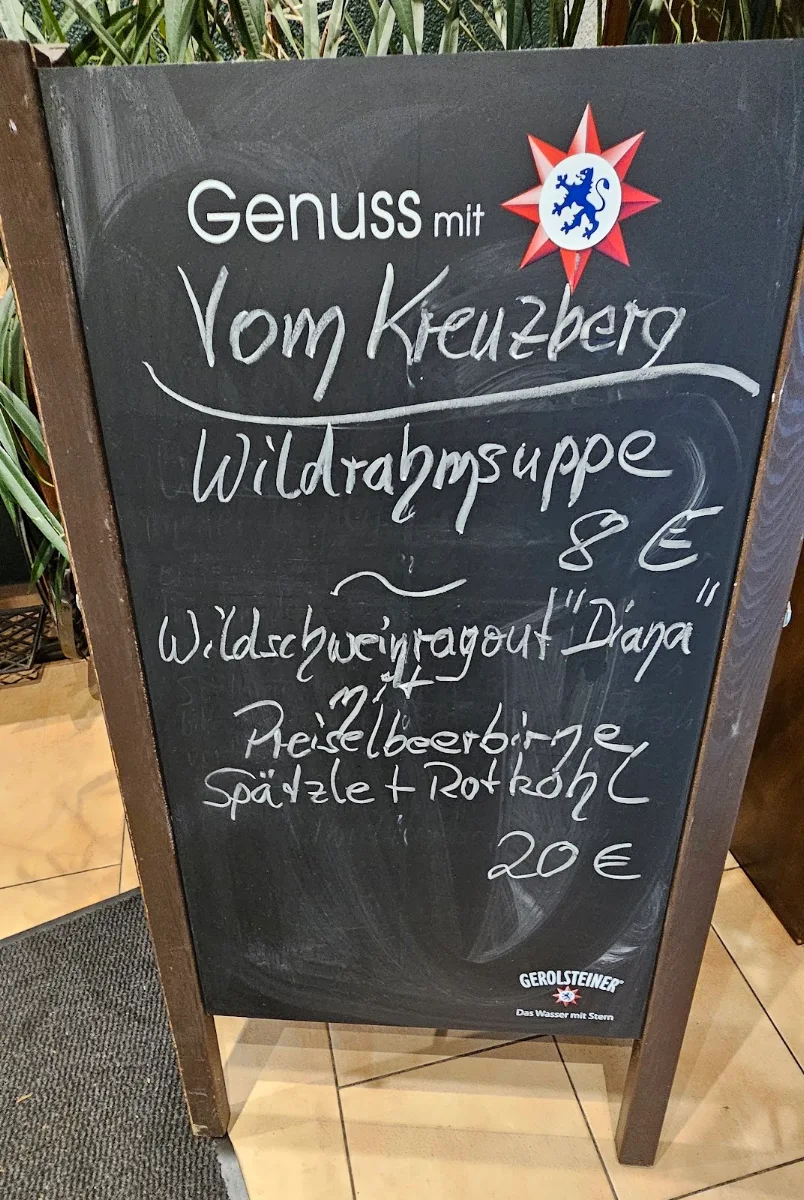 Genuss mit
Vom Kreuzberg
Wildrahmsuppe
8 €
Wildschweinragout "Diana"
mit
Preiselbeerbirne
Spätzle + Rotkohl
20 €
GEROLSTEINER
Das Wasser mit Stern